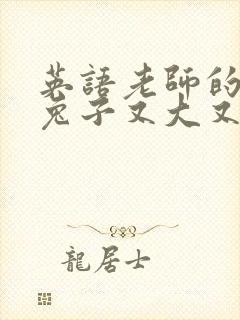 英語老師的
兔子又大又
龍居士